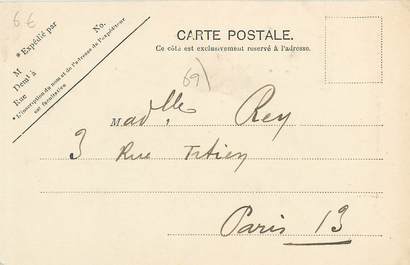 6 €
* Expédié par No.
M
Demt à
Rue
* L'inscription du nom et de l'adresse de l'expéditeur
est facultative
CARTE POSTALE.
Ce côté est exclusivement reservé à l'adresse.
69)
Madelle Rey
3 Rue Titien
Paris 13